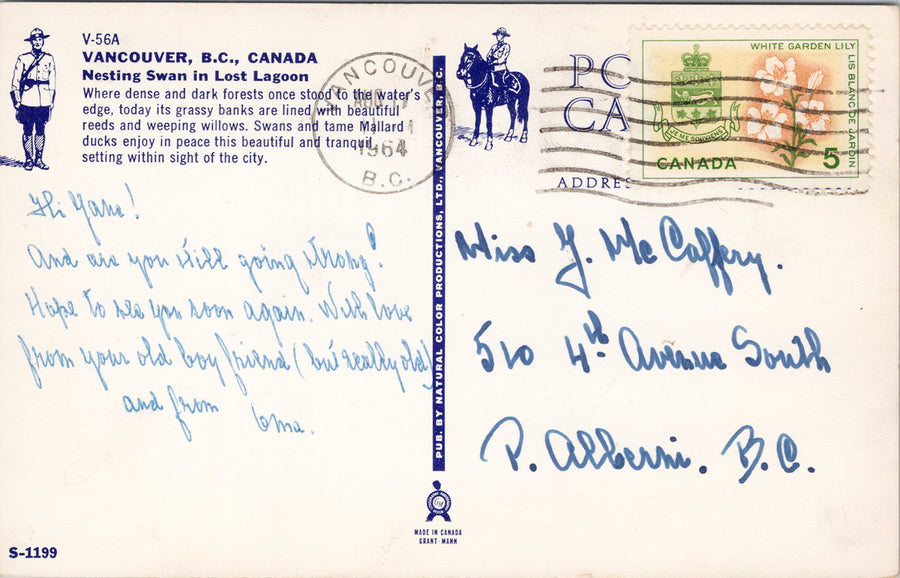 V-56A
VANCOUVER, B.C., CANADA
Nesting Swan in Lost Lagoon
Where dense and dark forests once stood to the water's
edge, today its grassy banks are lined with beautiful
reeds and weeping willows. Swans and tame Mallard
ducks enjoy in peace this beautiful and tranquil
setting within sight of the city.
Hi Jane!
And are you still going strong?
Hope to see you soon again. With love
from your old boy friend (but really old)
and from Oma.
S-1199
PUB. BY NATURAL COLOR PRODUCTIONS, LTD., VANCOUVER, B.C.
MADE IN CANADA
GRANT MANN
VANCOUVER
1964
B.C.
PO
CA
ADDRES
WHITE GARDEN LILY
LIS BLANC DE JARDIN
JE ME SOUVIENS
CANADA 5
Miss J. Mc Caffery.
510 4th Avenue South
P. Alberni. B.C.